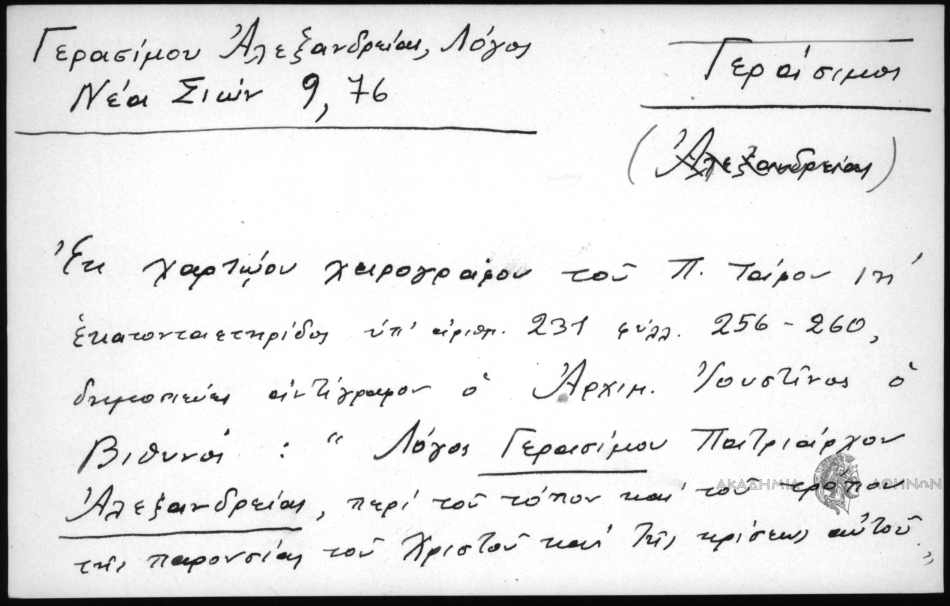 Γερασίμου Ἀλεξανδρείας, Λόγος
Νέα Σιών 9, 76
Γεράσιμος
(Ἀλεξανδρείας)
Ἐκ χαρτῴου χειρογράφου τοῦ Π. Τάφου ιη'
ἑκατονταετηρίδος ὑπ' ἀριθμ. 231 φύλλ. 256-260,
δημοσιεύει ἀντίγραφον ὁ Ἀρχιμ. Ἰουστῖνος ὁ
Βιθυνός : "Λόγος Γερασίμου Πατριάρχου
Ἀλεξανδρείας, περί τοῦ τόπου καί τοῦ τρόπου
τῆς παρουσίας τοῦ Χριστοῦ καί τῆς κρίσεως αὐτοῦ"
ΑΚΑΔΗΜΙΑ ΑΘΗΝΩΝ